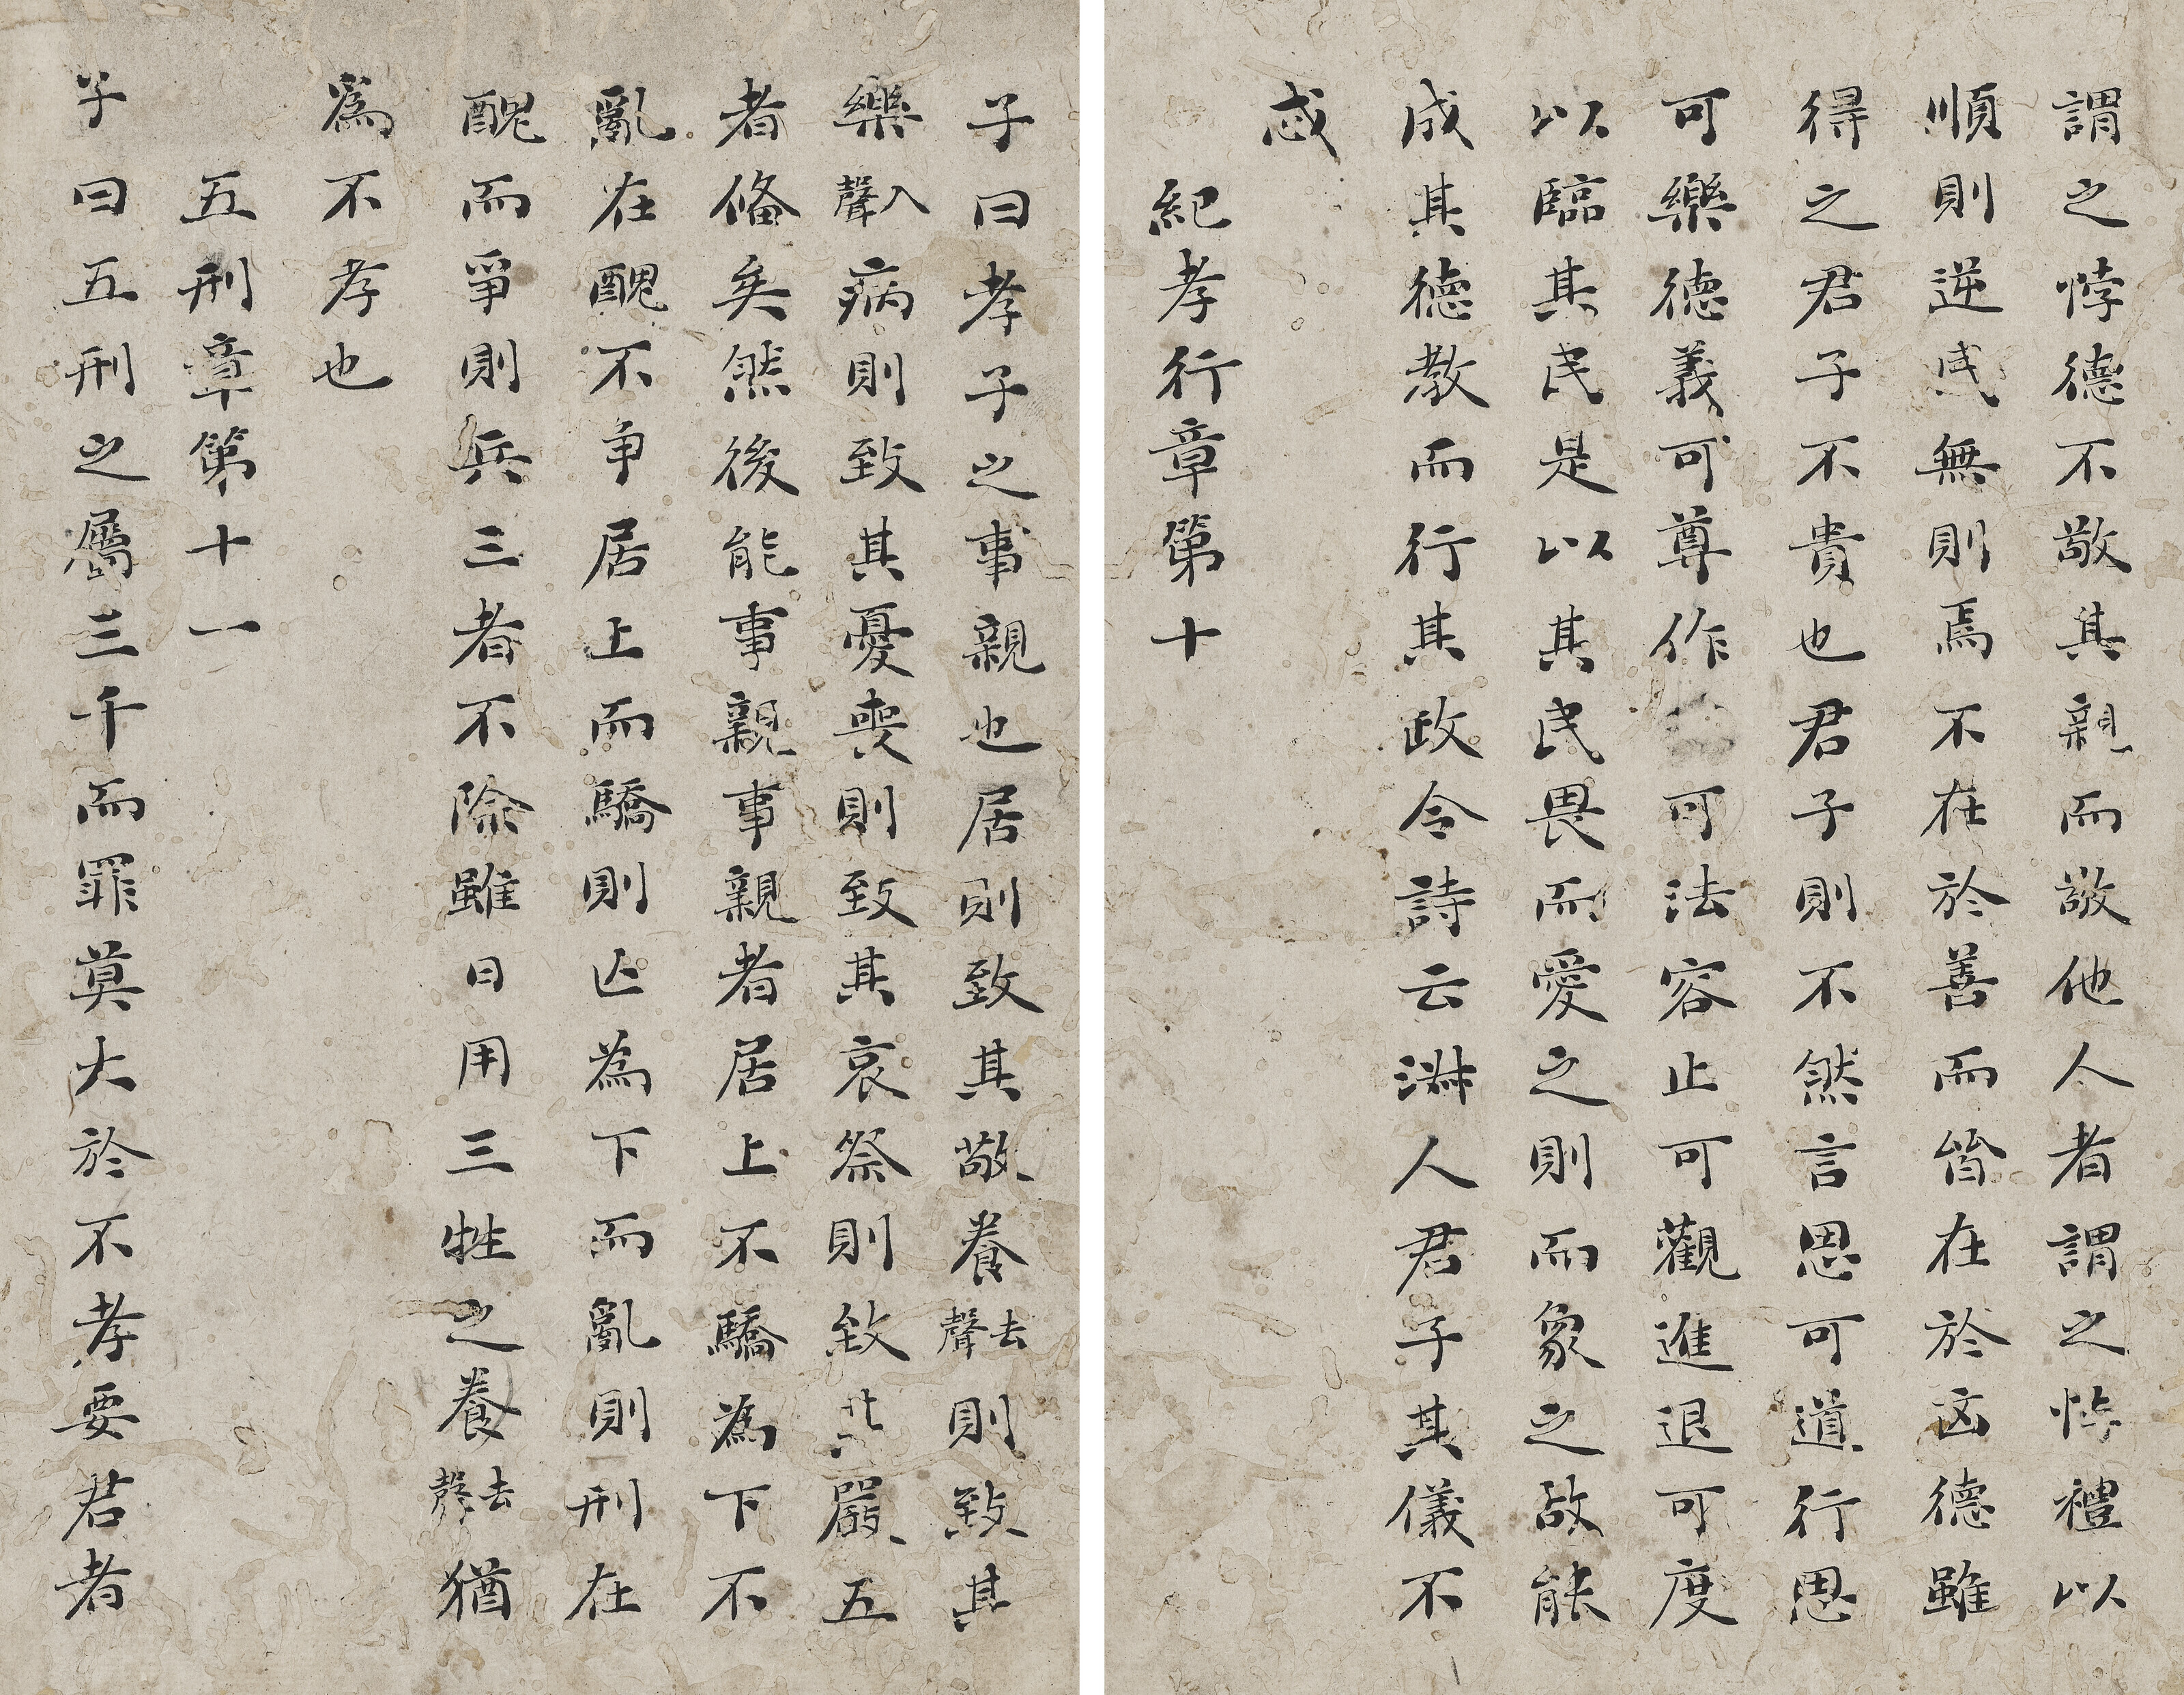 謂之悖德不敬其親而敬他人者謂之悖禮以
順則逆民無則焉不在於善而皆在於凶德雖
得之君子不貴也君子則不然言思可道行思
可樂德義可尊作可法容止可觀進退可度
以臨其民是以其民畏而愛之則而象之故能
成其德教而行其政令詩云淑人君子其儀不
忒
紀孝行章第十
子曰孝子之事親也居則致其敬養去聲則致其
樂入聲病則致其憂喪則致其哀祭則致其嚴五
者備矣然後能事親事親者居上不驕為下不
亂在醜不爭居上而驕則亡為下而亂則刑在
醜而爭則兵三者不除雖日用三牲之養去聲猶
為不孝也
五刑章第十一
子曰五刑之屬三千而罪莫大於不孝要君者